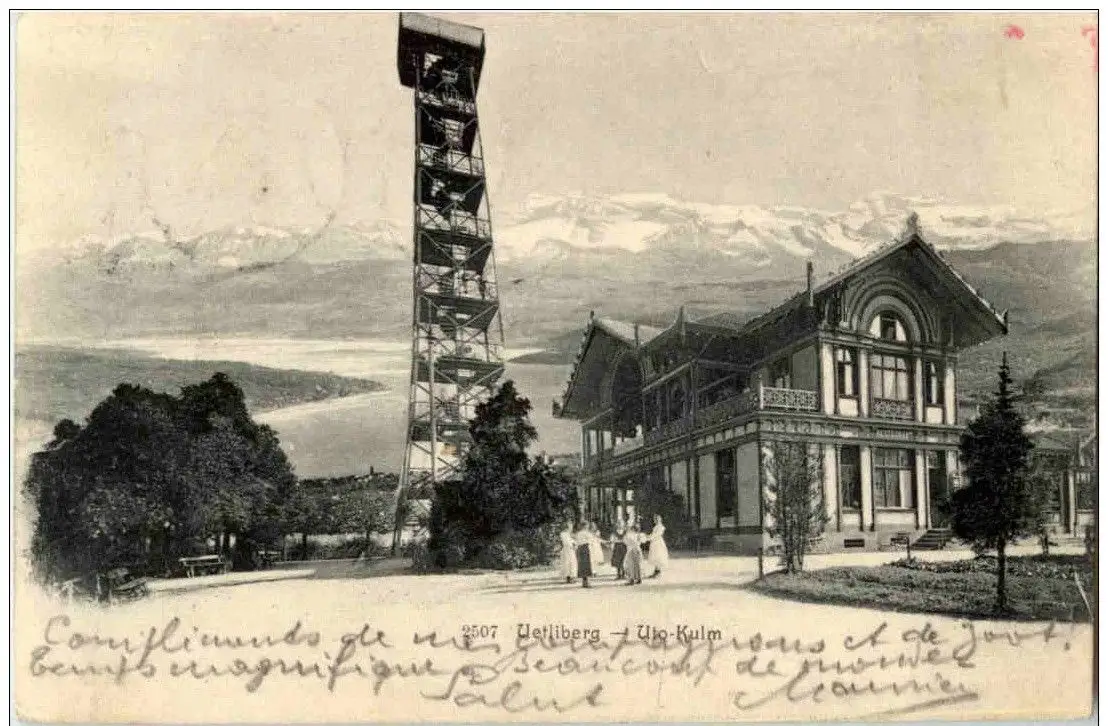 2507 Uetliberg – Uto-Kulm
Compliments de mes compagnons et de
temps magnifique Beaucoup de monde
Salut